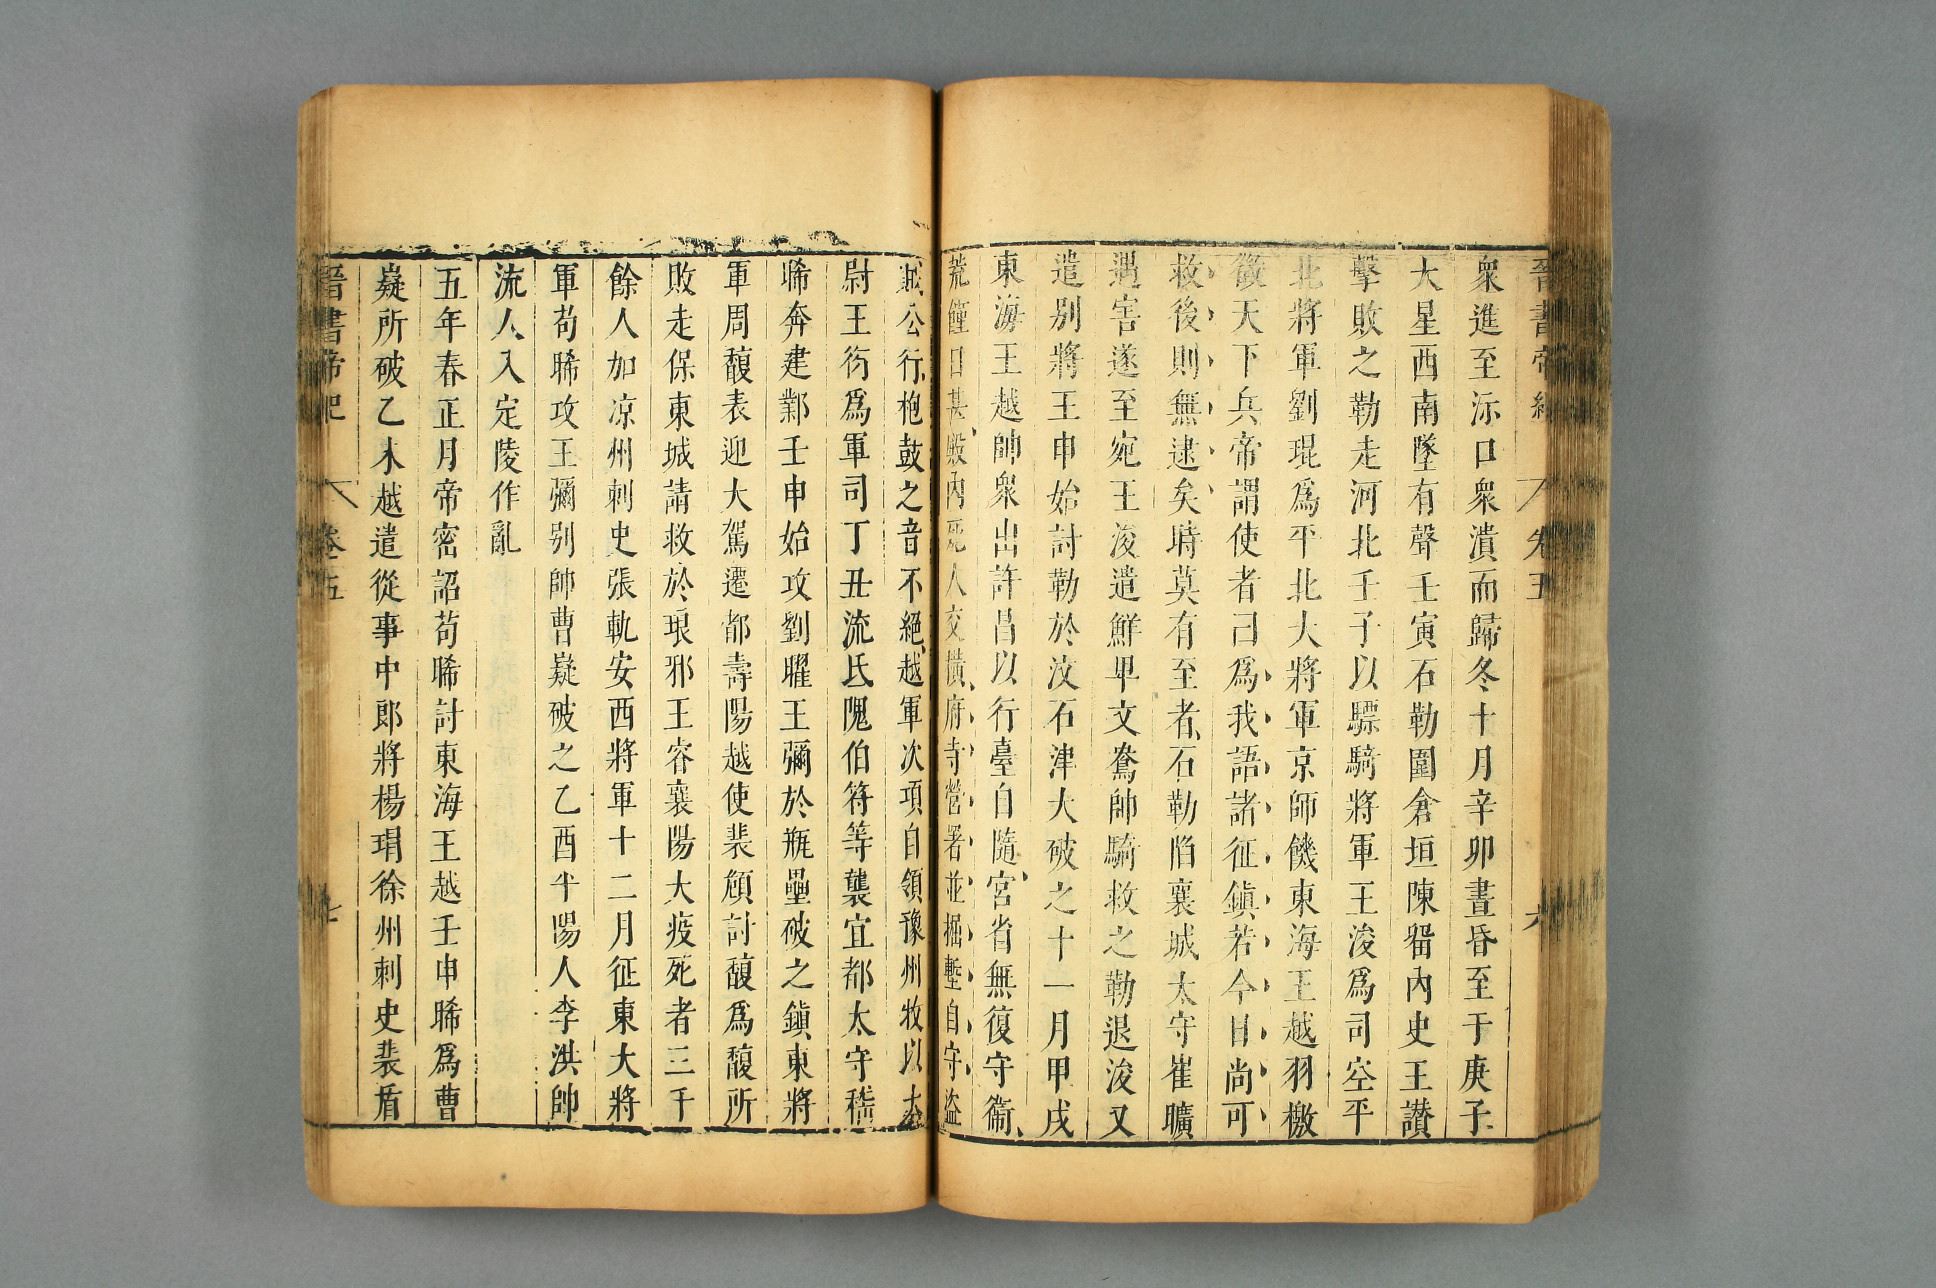 晉書帝紀 卷五 六
衆進至沶口衆潰而歸冬十月辛卯晝昏至于庚子
大星西南墜有聲壬寅石勒圍倉垣陳留內史王讃
擊敗之勒走河北壬子以驃騎將軍王浚爲司空平
北將軍劉琨爲平北大將軍京師饑東海王越羽檄
徵天下兵帝謂使者曰爲我語諸征鎭若今日尚可
救後則無逮矣時莫有至者石勒陷襄城太守崔曠
遇害遂至宛王浚遣鮮卑文鴦帥騎救之勒退浚又
遣別將王申始討勒於汶石津大破之十一月甲戌
東海王越帥衆出許昌以行臺自隨宮省無復守衞
荒饉日甚殿內死人交橫府寺營署並掘塹自守盜
賊公行枹鼓之音不絕越軍次項自領豫州牧以太
尉王衍爲軍司丁丑流氐隗伯符等襲宜都太守嵇
晞奔建鄴壬申始攻劉曜王彌於瓶壘破之鎭東將
軍周馥表迎大駕遷都壽陽越使裴頠討馥爲馥所
敗走保東城請救於琅邪王容襄陽大疫死者三千
餘人加凉州刺史張軌安西將軍十二月征東大將
軍苟晞攻王彌別帥曹嶷破之乙酉平陽人李洪帥
流人入定陵作亂
五年春正月帝密詔苟晞討東海王越壬申晞爲曹
嶷所破乙未越遣從事中郎將楊瑁徐州刺史裴盾
晉書帝紀 卷五 七